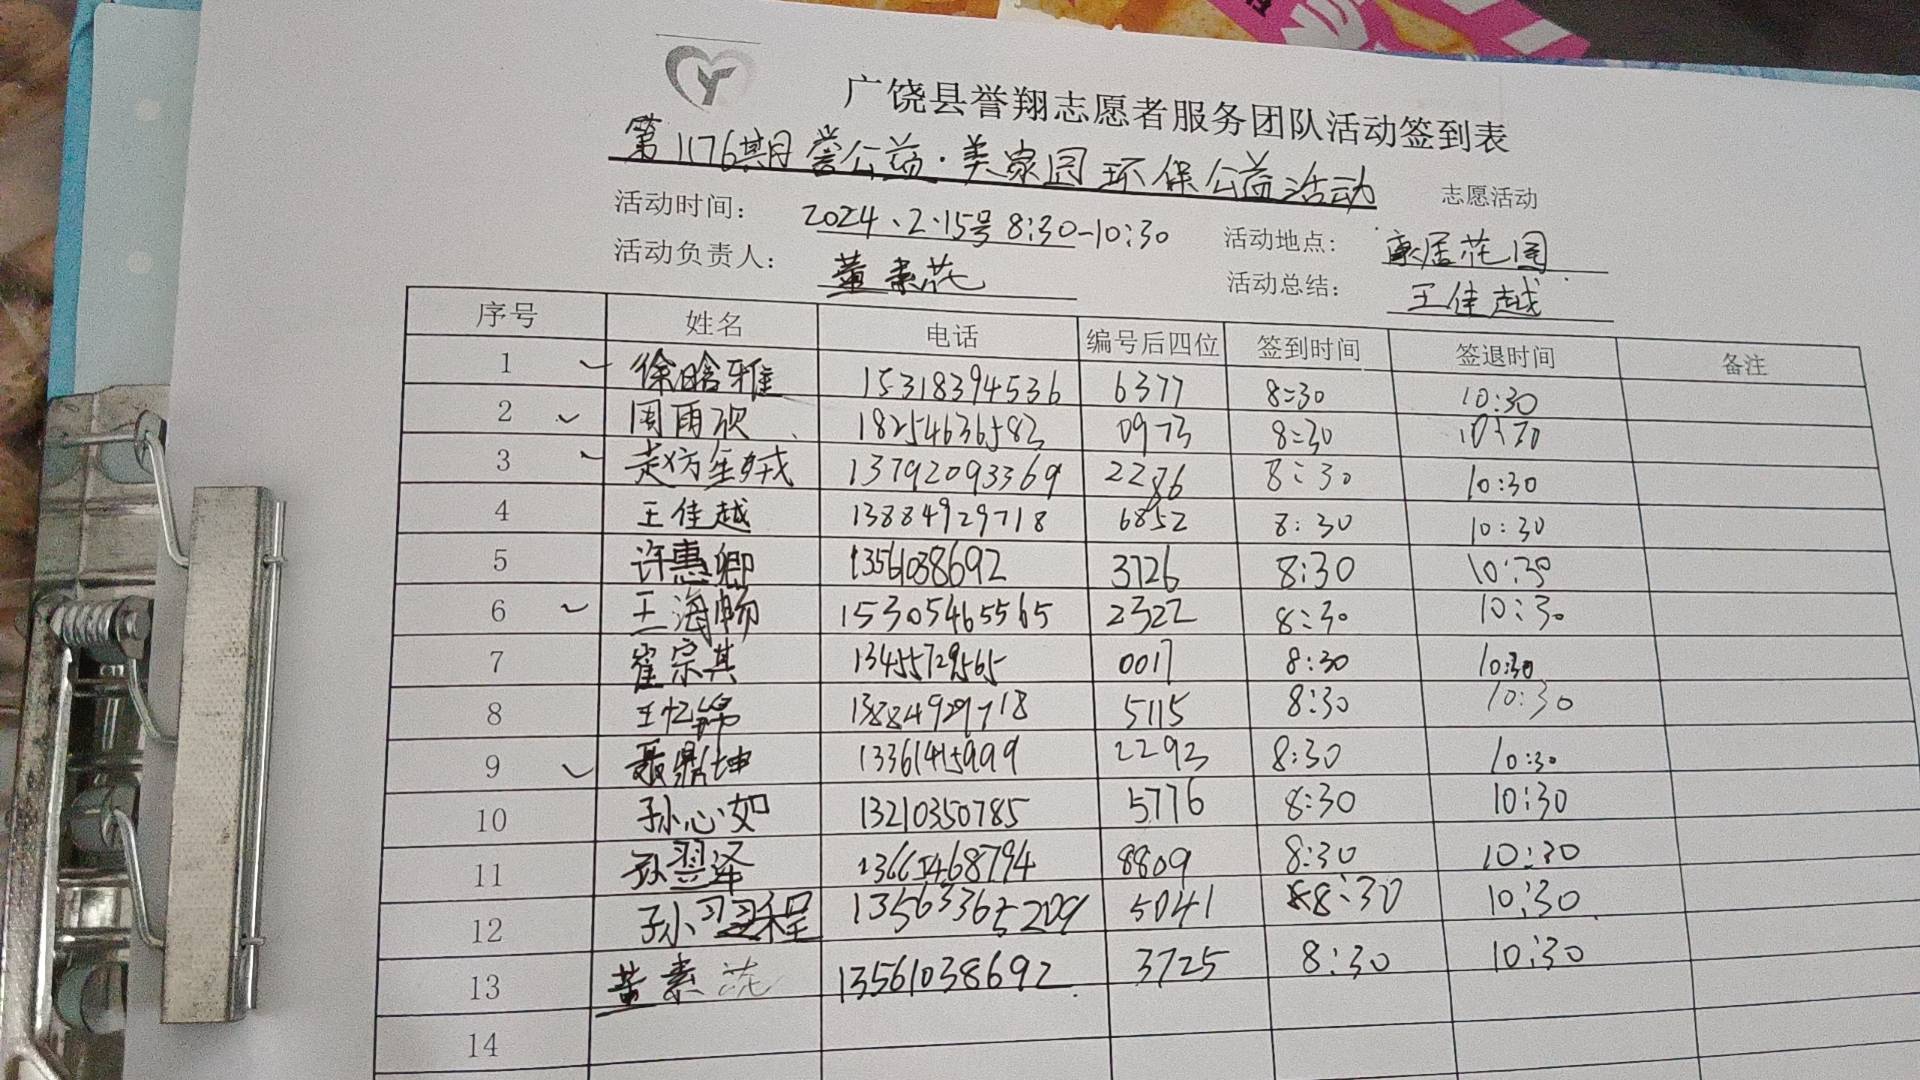 广饶县誉翔志愿者服务团队活动签到表
第1176期誉公益·美家园环保公益活动 志愿活动
活动时间: 2024、2·15号 8:30-10:30 活动地点: 康居花园
活动负责人: 董素花 活动总结: 王佳越
序号 姓名 电话 编号后四位 签到时间 签退时间 备注
1 徐晗雅 15318394536 6377 8:30 10:30
2 周雨 18254636583 0973 8:30 10:30
3 13792093369 2286 8:30 10:30
4 王佳越 13884929718 6852 8:30 10:30
5 许惠卿 13561038692 3726 8:30 10:30
6 王海畅 15305465565 2322 8:30 10:30
7 崔宗其 13455729565 0017 8:30 10:30
8 王忆锦 13884929718 5115 8:30 10:30
9 聂鼎坤 13361415999 2293 8:30 10:30
10 孙心如 13210350785 5776 8:30 10:30
11 孙翌泽 13665468794 8809 8:30 10:30
12 孙 13563365209 5041 8:30 10:30
13 董素花 13561038692 3725 8:30 10:30
14